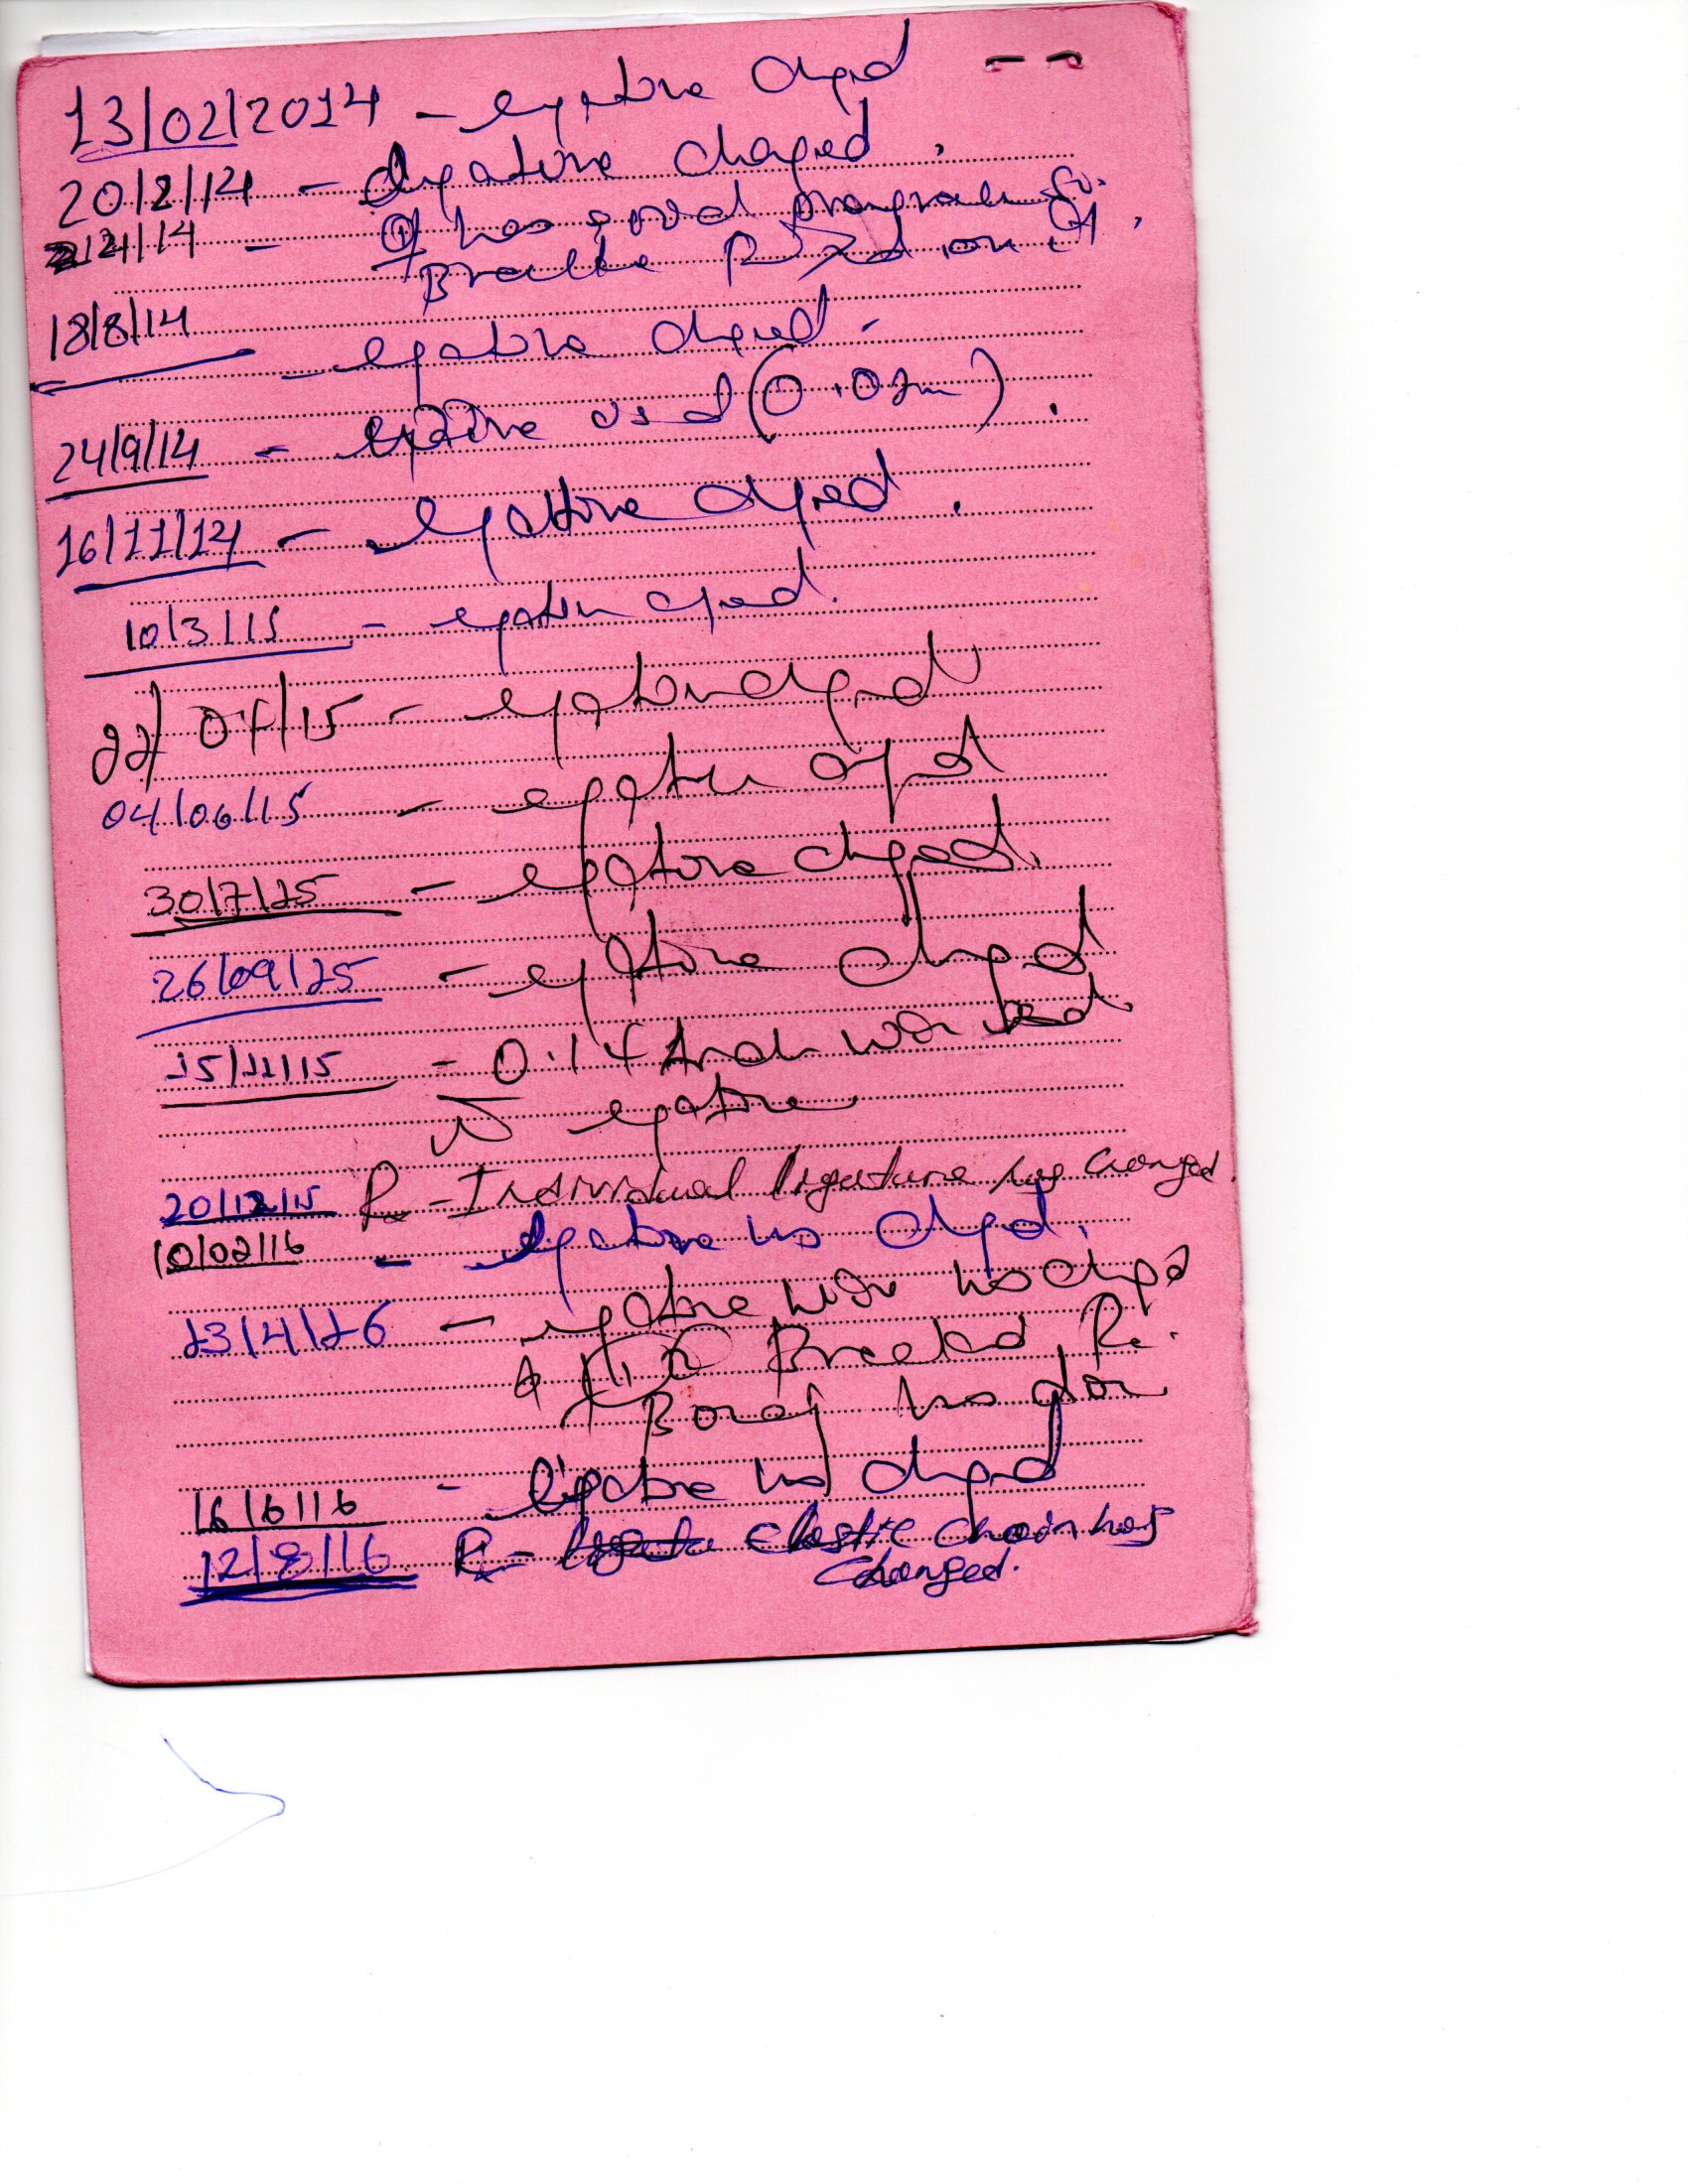 13/02/2014 - ligature chged
20/2/14 - ligature changed.
2/4/14 - has good progress
Bracket fixed on
18/8/14
- ligature chged -
24/9/14 - ligature used (0.02m).
16/11/14 - ligature chged.
10/3/15 - ligature chged.
22/04/15 - ligature chged
04/06/15 - ligature chged
30/7/15 - ligature chged.
26/09/15 - ligature chged
15/11/15 - 0.14 Arch wire used
ligature
20/12/15 Rx - Individual ligature has changed.
10/02/16 - ligature has chged.
13/4/16 - ligature wire has chged
& Bracket Re.
Bondg has don
16/6/16 - ligature has chged
12/8/16 Rx - elastic chain has
changed.